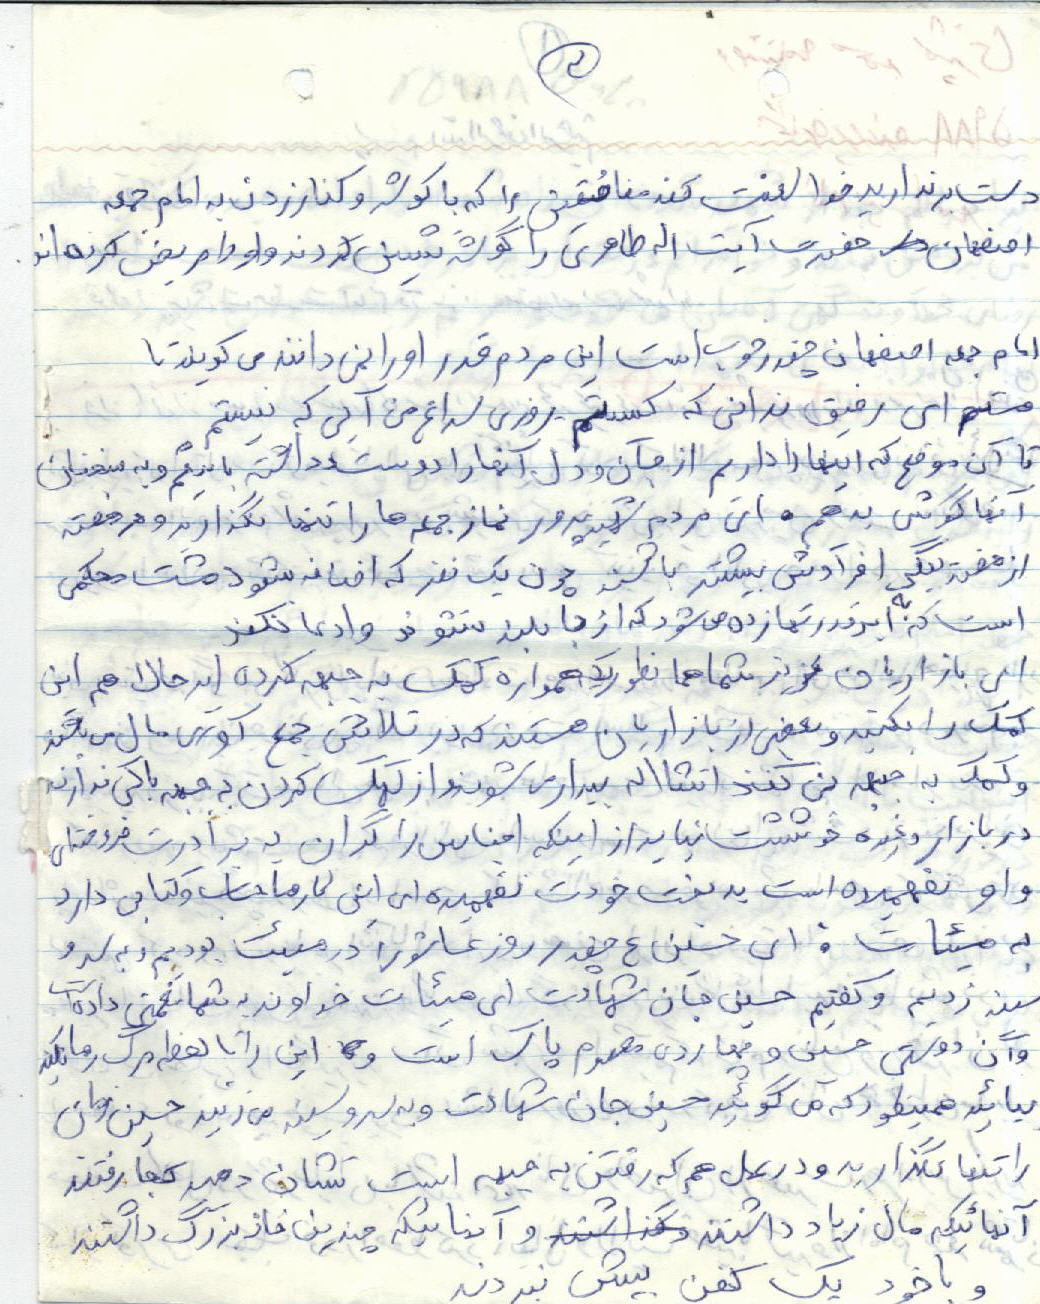 ۳
دست برندارید خدا لعنت کند منافقین را که با گوشه و کنار زدن به امام جمعه
اصفهان حضرت آیت اله طاهری را گوشه نشین کردند و او را مریض کرده‌اند.
امام جمعه اصفهان چقدر خوب است این مردم قدر او را نمی دانند می گویند تا
هستم ای رفیق ندانی که کیستم روزی سراغ من آئی که نیستم
تا آن موقع که اینها را داریم از جان و دل آنها را دوست داشته باشیم و به سخنان
آنها گوش بدهیم ای مردم شهید پرور نماز جمعه ها را تنها نگذارید و هر هفته
از هفته دیگر افرادش بیشتر باشد چون یک نفر که اضافه شود مشت محکمی
است که به ابرقدرتها زده می شود که از جا بلند نشوند و ادعا نکنند
ای بازاریان عزیز شما همانطوریکه همواره کمک به جبهه کرده اید حالا هم این
کمک را بکنید و بعضی از بازاریان هستند که در تلاش جمع آوری مال می باشند
و کمک به جبهه نمی کنند انشااله بیدار می شوند و از کمک کردن به جبهه باکی ندارند
در بازار و غیره خوشت نیاید از اینکه اجناس را گران به برادرت فروخته‌ای
و او نفهمیده است بدبخت خودت نفهمیده ای این کارها حساب و کتابی دارد
به هیئات : ای حسین ع چقدر روز عاشورا در هیئت بودیم و به سر و
سینه زدیم و گفتیم حسین جان شهادت ای هیئات خداوند به شما نعمتی داده است
و آن دوستی حسین و چهارده معصوم پاک است و این را تا لحظه مرگ رها نکنید
بیائید همینطور که می گوئید حسین جان شهادت و به سر و سینه می زنید حسین زمان
را تنها نگذارید و در عمل هم که رفتن به جبهه است نشان دهید کجا رفتند
آنهائیکه مال زیاد داشتند و آنهائیکه چندین خانه بزرگ داشتند
و با خود یک کفن بیش نبردند